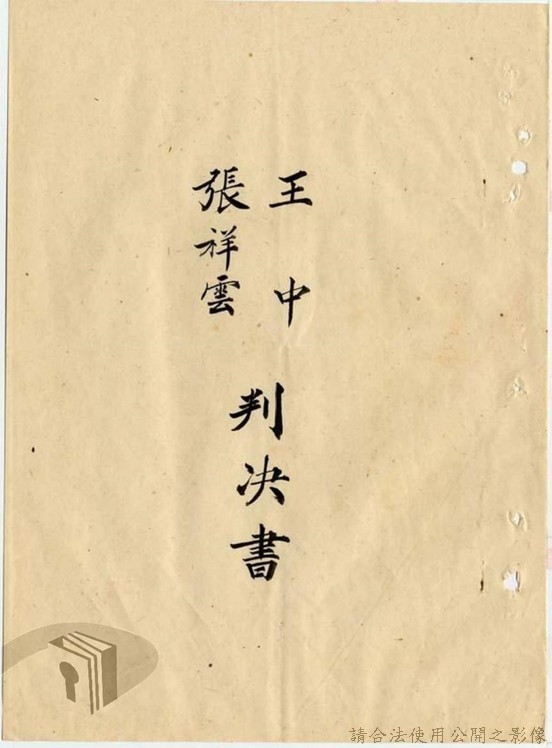 王中
張祥雲
判决書
請合法使用公開之影像